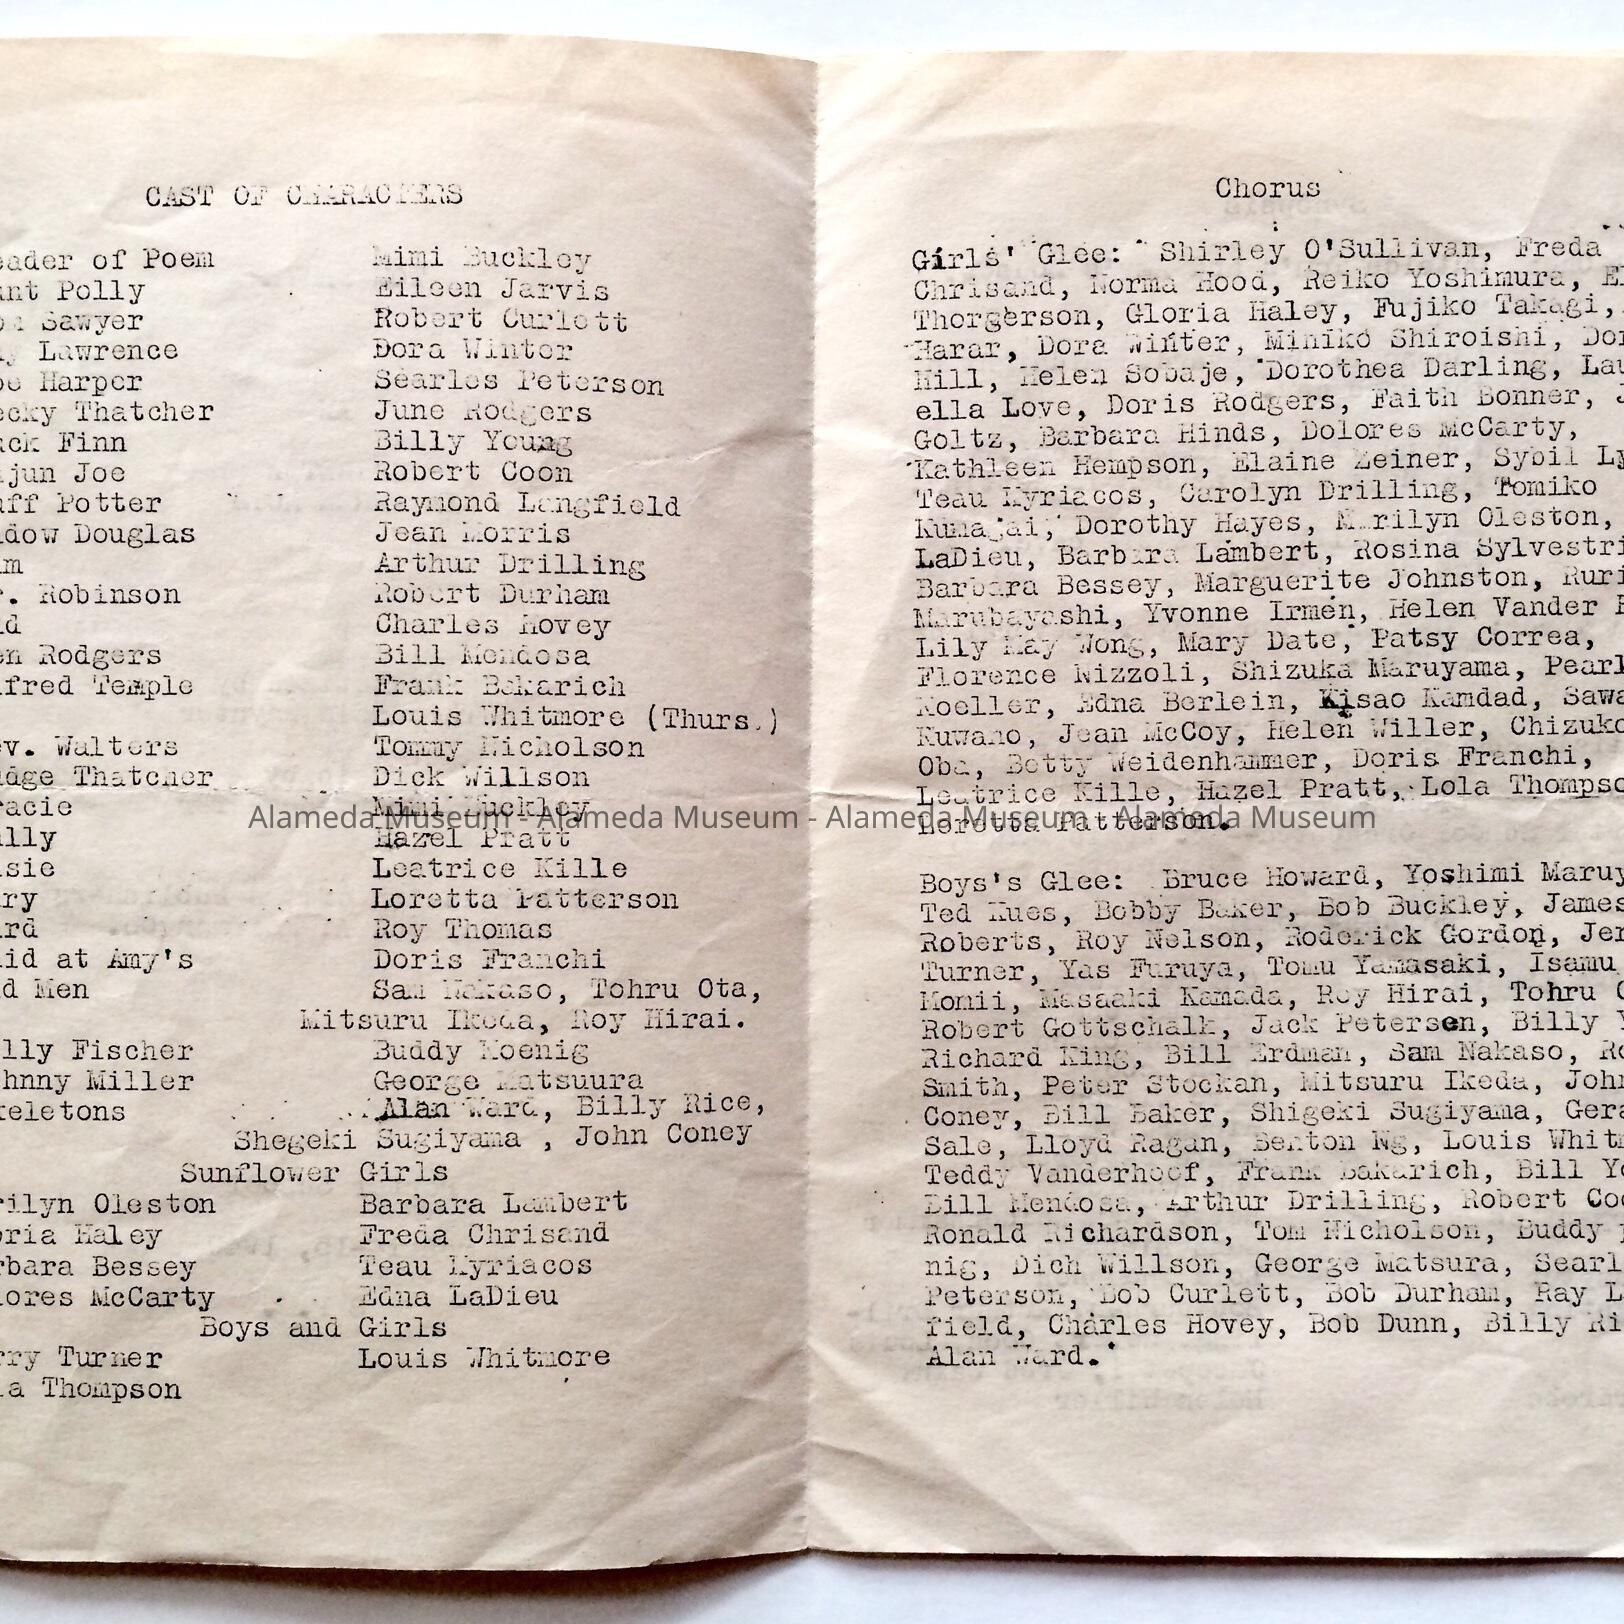 CAST OF CHARACTERS
eader of Poem Mimi Buckley
unt Polly Eileen Jarvis
om Sawyer Robert Curlett
y Lawrence Dora Winter
oe Harper Searles Peterson
ecky Thatcher June Rodgers
uck Finn Billy Young
njun Joe Robert Coon
uff Potter Raymond Langfield
idow Douglas Jean Morris
im Arthur Drilling
r. Robinson Robert Durham
id Charles Hovey
en Rodgers Bill Mendosa
lfred Temple Frank Bakarich
Louis Whitmore (Thurs.)
ev. Walters Tommy Nicholson
udge Thatcher Dick Willson
racie Mimi Buckley
ally Hazel Pratt
usie Leatrice Kille
ary Loretta Patterson
ard Roy Thomas
aid at Amy's Doris Franchi
d Men Sam Nakaso, Tohru Ota,
Mitsuru Ikeda, Roy Hirai.
illy Fischer Buddy Koenig
ohnny Miller George Matsuura
keletons Alan Ward, Billy Rice,
Shegeki Sugiyama , John Coney
Sunflower Girls
rilyn Oleston Barbara Lambert
oria Haley Freda Chrisand
rbara Bessey Teau Kyriacos
lores McCarty Edna LaDieu
Boys and Girls
rry Turner Louis Whitmore
la Thompson
Chorus
Girls' Glee: Shirley O'Sullivan, Freda
Chrisand, Norma Hood, Reiko Yoshimura, El
Thorgerson, Gloria Haley, Fujiko Takagi,
Harar, Dora Winter, Miniko Shiroishi, Dor
Hill, Helen Sobaje, Dorothea Darling, Lau
ella Love, Doris Rodgers, Faith Bonner, J
Goltz, Barbara Hinds, Dolores McCarty,
Kathleen Hempson, Elaine Zeiner, Sybil Ly
Teau Kyriacos, Carolyn Drilling, Tomiko
Kumagai, Dorothy Hayes, Marilyn Oleston,
LaDieu, Barbara Lambert, Rosina Sylvestri
Barbara Bessey, Marguerite Johnston, Ruri
Marubayashi, Yvonne Irmen, Helen Vander
Lily May Wong, Mary Date, Patsy Correa,
Florence Nizzoli, Shizuka Maruyama, Pearl
Koeller, Edna Berlein, Kisao Kamdad, Sawa
Kuwano, Jean McCoy, Helen Willer, Chizuko
Oba, Betty Weidenhammer, Doris Franchi,
Leatrice Kille, Hazel Pratt, Lola Thompso
Loretta Patterson.
Alameda Museum - Alameda Museum - Alameda Museum - Alameda Museum
Boys's Glee: Bruce Howard, Yoshimi Maruy
Ted Kues, Bobby Baker, Bob Buckley, James
Roberts, Roy Nelson, Roderick Gordon, Jer
Turner, Yas Furuya, Tomu Yamasaki, Isamu
Momii, Masaaki Kamada, Roy Hirai, Tohru O
Robert Gottschalk, Jack Petersen, Billy Y
Richard King, Bill Erdman, Sam Nakaso, Ro
Smith, Peter Stockan, Mitsuru Ikeda, John
Coney, Bill Baker, Shigeki Sugiyama, Gera
Sale, Lloyd Ragan, Benton Ng, Louis Whitm
Teddy Vanderhoof, Frank Bakarich, Bill Yo
Bill Mendosa, Arthur Drilling, Robert Coo
Ronald Richardson, Tom Nicholson, Buddy
nig, Dich Willson, George Matsura, Searl
Peterson, Bob Curlett, Bob Durham, Ray L
field, Charles Hovey, Bob Dunn, Billy Ri
Alan Ward.